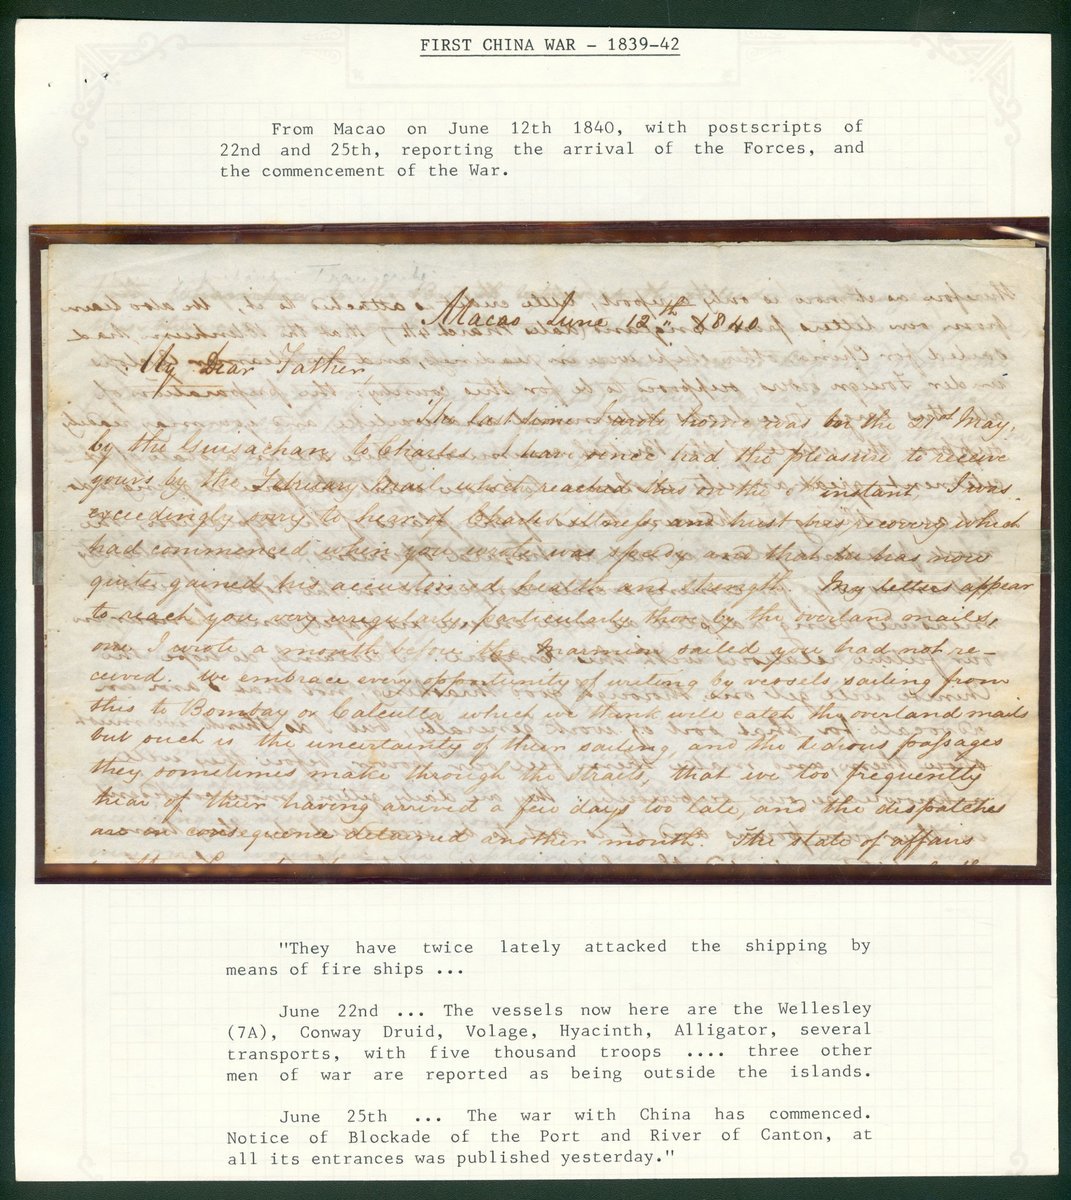 FIRST CHINA WAR - 1839-42
From Macao on June 12th 1840, with postscripts of
22nd and 25th, reporting the arrival of the Forces, and
the commencement of the War.
Macao June 12th 1840
My Dear Father,
The last time I wrote home was on the 21st May,
by the Guisachan to Charles, I have since had the pleasure to receive
yours by the February Mail which reached this on the instant, I was
exceedingly sorry to hear of Charles' illness, and trust his recovery which
had commenced when you wrote was speedy and that he has now
quite gained his accustomed health and strength. My letters appear
to reach you very irregularly, particularly those by the overland mails,
one I wrote a month before the Marmion sailed you had not re-
ceived. We embrace every opportunity of writing by vessels sailing from
this to Bombay or Calcutta which we think will catch the overland mails
but such is the uncertainty of their sailing, and the tedious passages
they sometimes make through the straits, that we too frequently
hear of their having arrived a few days too late, and the dispatches
are in consequence detained another month. The state of affairs
"They have twice lately attacked the shipping by
means of fire ships ...
June 22nd ... The vessels now here are the Wellesley
(7A), Conway Druid, Volage, Hyacinth, Alligator, several
transports, with five thousand troops .... three other
men of war are reported as being outside the islands.
June 25th ... The war with China has commenced.
Notice of Blockade of the Port and River of Canton, at
all its entrances was published yesterday."